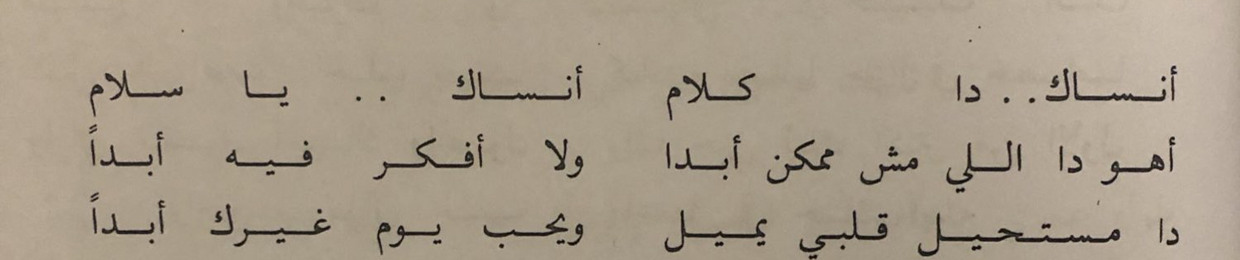 أنساك.. دا كلام أنساك .. يا سلام
أهو دا اللي مش ممكن أبدا ولا أفكر فيه أبداً
دا مستحيل قلبي يميل ويحب يوم غيرك أبداً